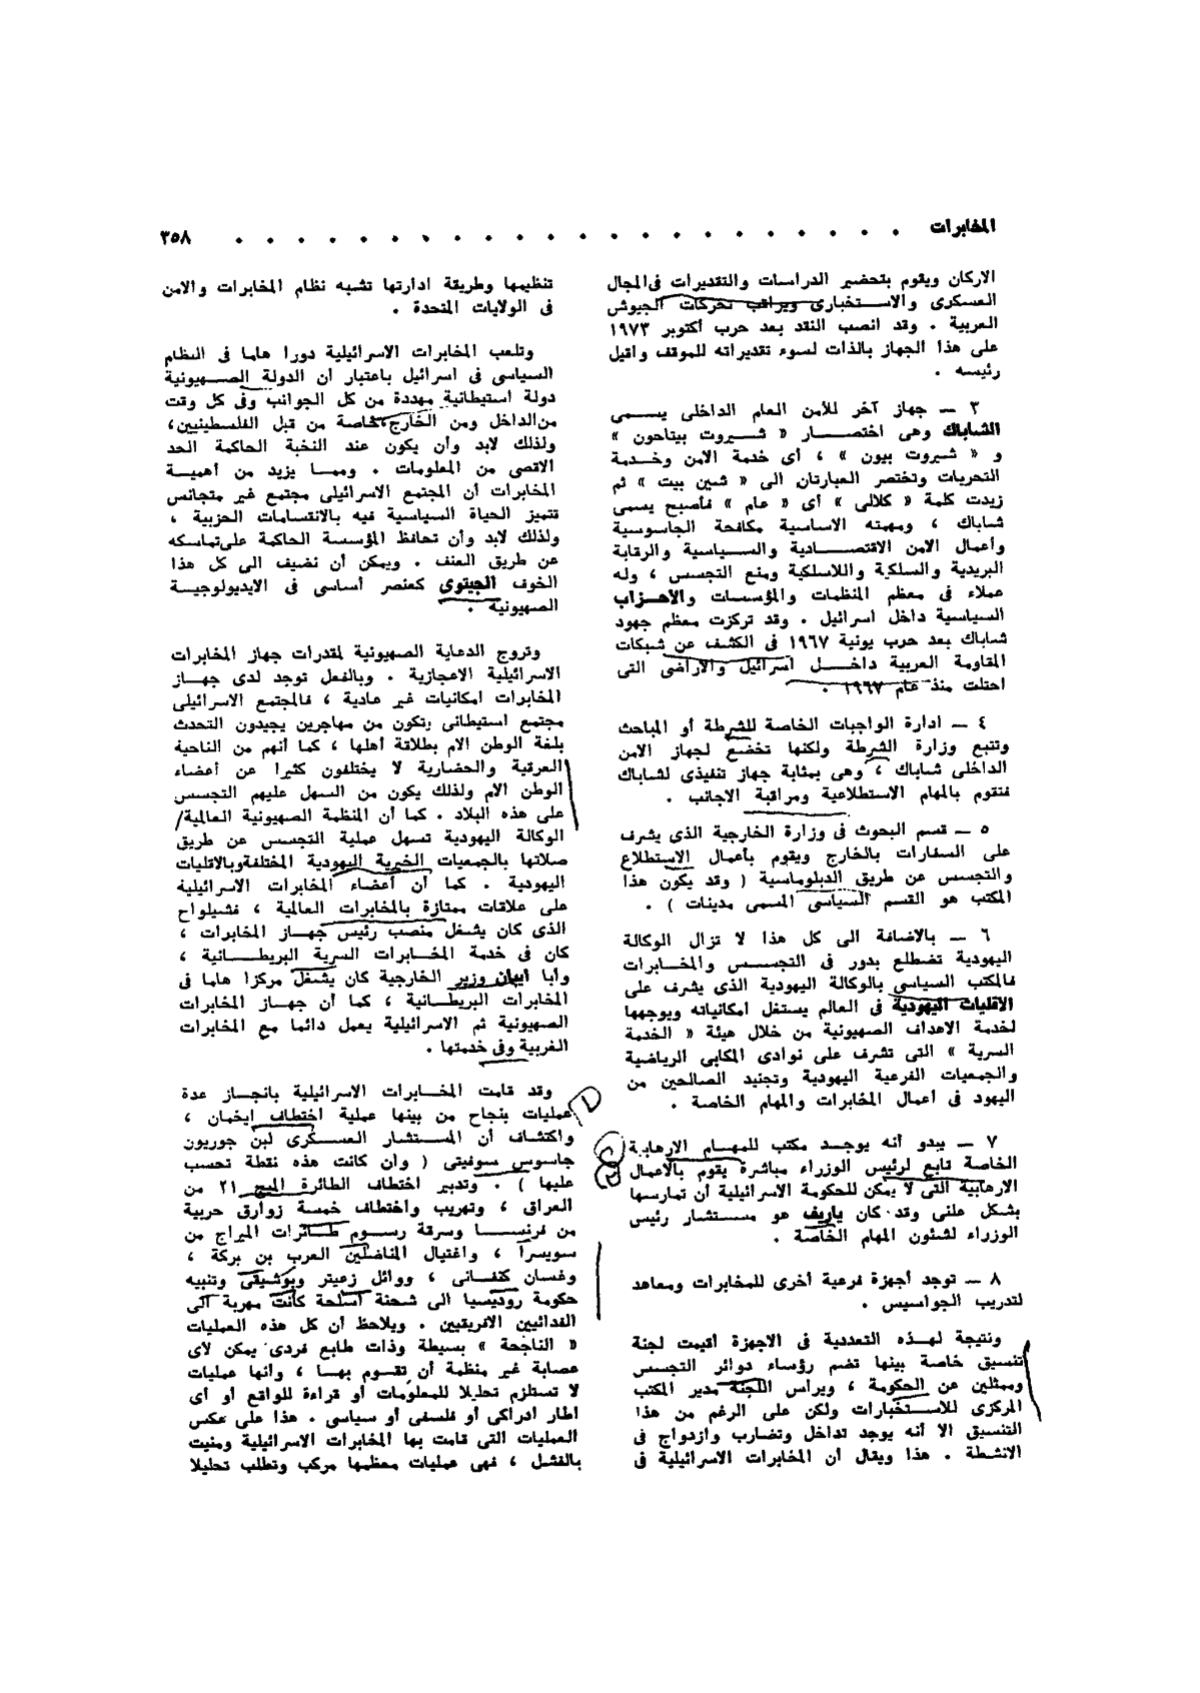 المخابرات
٣٥٨
الاركان ويقوم بتحضير الدراسات والتقديرات فى المجال
العسكرى والاستخبارى ويراقب تحركات الجيوش
العربية . وقد انصب النقد بعد حرب أكتوبر ١٩٧٣
على هذا الجهاز بالذات لسوء تقديراته للموقف واقيل
رئيسه .
٣ — جهاز آخر للأمن العام الداخلى يسمى
الشاباك وهى اختصار « شيروت بيتاحون »
و « شيروت بيون » ، أى خدمة الامن وخدمة
التحريات وتختصر العبارتان الى « شين بيت » ثم
زيدت كلمة « كلالى » أى « عام » فأصبح يسمى
شاباك ، ومهمته الاساسية مكافحة الجاسوسية
وأعمال الامن الاقتصادية والسياسية والرقابة
البريدية والسلكية واللاسلكية ومنع التجسس ، وله
عملاء فى معظم المنظمات والمؤسسات والاحزاب
السياسية داخل اسرائيل . وقد تركزت معظم جهود
شاباك بعد حرب يونية ١٩٦٧ فى الكشف عن شبكات
المقاومة العربية داخل اسرائيل والاراضى التى
احتلت منذ عام ١٩٦٧ .
٤ — ادارة الواجبات الخاصة للشرطة أو المباحث
وتتبع وزارة الشرطة ولكنها تخضع لجهاز الامن
الداخلى شاباك ، وهى بمثابة جهاز تنفيذى لشاباك
فتقوم بالمهام الاستطلاعية ومراقبة الاجانب .
٥ — قسم البحوث فى وزارة الخارجية الذى يشرف
على السفارات بالخارج ويقوم بأعمال الاستطلاع
والتجسس عن طريق الدبلوماسية ( وقد يكون هذا
المكتب هو القسم السياسى المسمى مدينات ) .
٦ — بالاضافة الى كل هذا لا تزال الوكالة
اليهودية تضطلع بدور فى التجسس والمخابرات
فالمكتب السياسى بالوكالة اليهودية الذى يشرف على
الاقليات اليهودية فى العالم يستغل امكانياته ويوجهها
لخدمة الاهداف الصهيونية من خلال هيئة « الخدمة
السرية » التى تشرف على نوادى المكابى الرياضية
والجمعيات الفرعية اليهودية وتجنيد الصالحين من
اليهود فى أعمال المخابرات والمهام الخاصة .
٧ — يبدو أنه يوجد مكتب للمهام الارهابية
الخاصة تابع لرئيس الوزراء مباشرة يقوم بالاعمال
الارهابية التى لا يمكن للحكومة الاسرائيلية أن تمارسها
بشكل علنى وقد كان ياريف هو مستشار رئيس
الوزراء لشئون المهام الخاصة .
٨ — توجد أجهزة فرعية أخرى للمخابرات ومعاهد
لتدريب الجواسيس .
ونتيجة لهذه التعددية فى الاجهزة أقيمت لجنة
تنسيق خاصة بينها تضم رؤساء دوائر التجسس
وممثلين عن الحكومة ، ويراس اللجنة مدير المكتب
المركزى للاستخبارات ولكن على الرغم من هذا
التنسيق الا أنه يوجد تداخل وتضارب وازدواج فى
الانشطة . هذا ويقال أن المخابرات الاسرائيلية فى
تنظيمها وطريقة ادارتها تشبه نظام المخابرات والامن
فى الولايات المتحدة .
وتلعب المخابرات الاسرائيلية دورا هاما فى النظام
السياسى فى اسرائيل باعتبار أن الدولة الصهيونية
دولة استيطانية مهددة من كل الجوانب وفى كل وقت
من الداخل ومن الخارج خاصة من قبل الفلسطينيين،
ولذلك لابد وأن يكون عند النخبة الحاكمة الحد
الاقصى من المعلومات . ومما يزيد من أهمية
المخابرات أن المجتمع الاسرائيلى مجتمع غير متجانس
تتميز الحياة السياسية فيه بالانقسامات الحزبية ،
ولذلك لابد وأن تحافظ المؤسسة الحاكمة على تماسكه
عن طريق العنف . ويمكن أن نضيف الى كل هذا
الخوف الجيتوى كعنصر أساسى فى الايديولوجية
الصهيونية .
وتروج الدعاية الصهيونية لمقدرات جهاز المخابرات
الاسرائيلية الاعجازية . وبالفعل توجد لدى جهاز
المخابرات امكانيات غير عادية ، فالمجتمع الاسرائيلى
مجتمع استيطانى يتكون من مهاجرين يجيدون التحدث
بلغة الوطن الام بطلاقة أهلها ، كما أنهم من الناحية
العرقية والحضارية لا يختلفون كثيرا عن أعضاء
الوطن الام ولذلك يكون من السهل عليهم التجسس
على هذه البلاد . كما أن المنظمة الصهيونية العالمية/
الوكالة اليهودية تسهل عملية التجسس عن طريق
صلاتها بالجمعيات الخيرية اليهودية المختلفة وبالاقليات
اليهودية . كما أن أعضاء المخابرات الاسرائيلية
على علاقات ممتازة بالمخابرات العالمية ، فشيلواح
الذى كان يشغل منصب رئيس جهاز المخابرات ،
كان فى خدمة المخابرات السرية البريطانية ،
وأبا ايبان وزير الخارجية كان يشغل مركزا هاما فى
المخابرات البريطانية ، كما أن جهاز المخابرات
الصهيونية ثم الاسرائيلية يعمل دائما مع المخابرات
الغربية وفى خدمتها .
وقد قامت المخابرات الاسرائيلية بانجاز عدة
عمليات بنجاح من بينها عملية اختطاف ايخمان ،
واكتشاف أن المستشار العسكرى لبن جوريون
جاسوس سوفيتى ( وأن كانت هذه نقطة تحسب
عليها ) . وتدبير اختطاف الطائرة الميج ٢١ من
العراق ، وتهريب واختطاف خمسة زوارق حربية
من فرنسا وسرقة رسوم طائرات الميراج من
سويسرا ، واغتيال المناضلين العرب بن بركة ،
وغسان كنفانى ، ووائل زعيتر وبوشيقى وتنبيه
حكومة روديسيا الى شحنة أسلحة كانت مهربة الى
الفدائيين الافريقيين . ويلاحظ أن كل هذه العمليات
« الناجحة » بسيطة وذات طابع فردى يمكن لاى
عصابة غير منظمة أن تقوم بها ، وأنها عمليات
لا تستلزم تحليلا للمعلومات أو قراءة للواقع أو أى
اطار أدراكى أو فلسفى أو سياسى . هذا على عكس
العمليات التى قامت بها المخابرات الاسرائيلية ومنيت
بالفشل ، فهى عمليات معظمها مركب وتطلب تحليلا